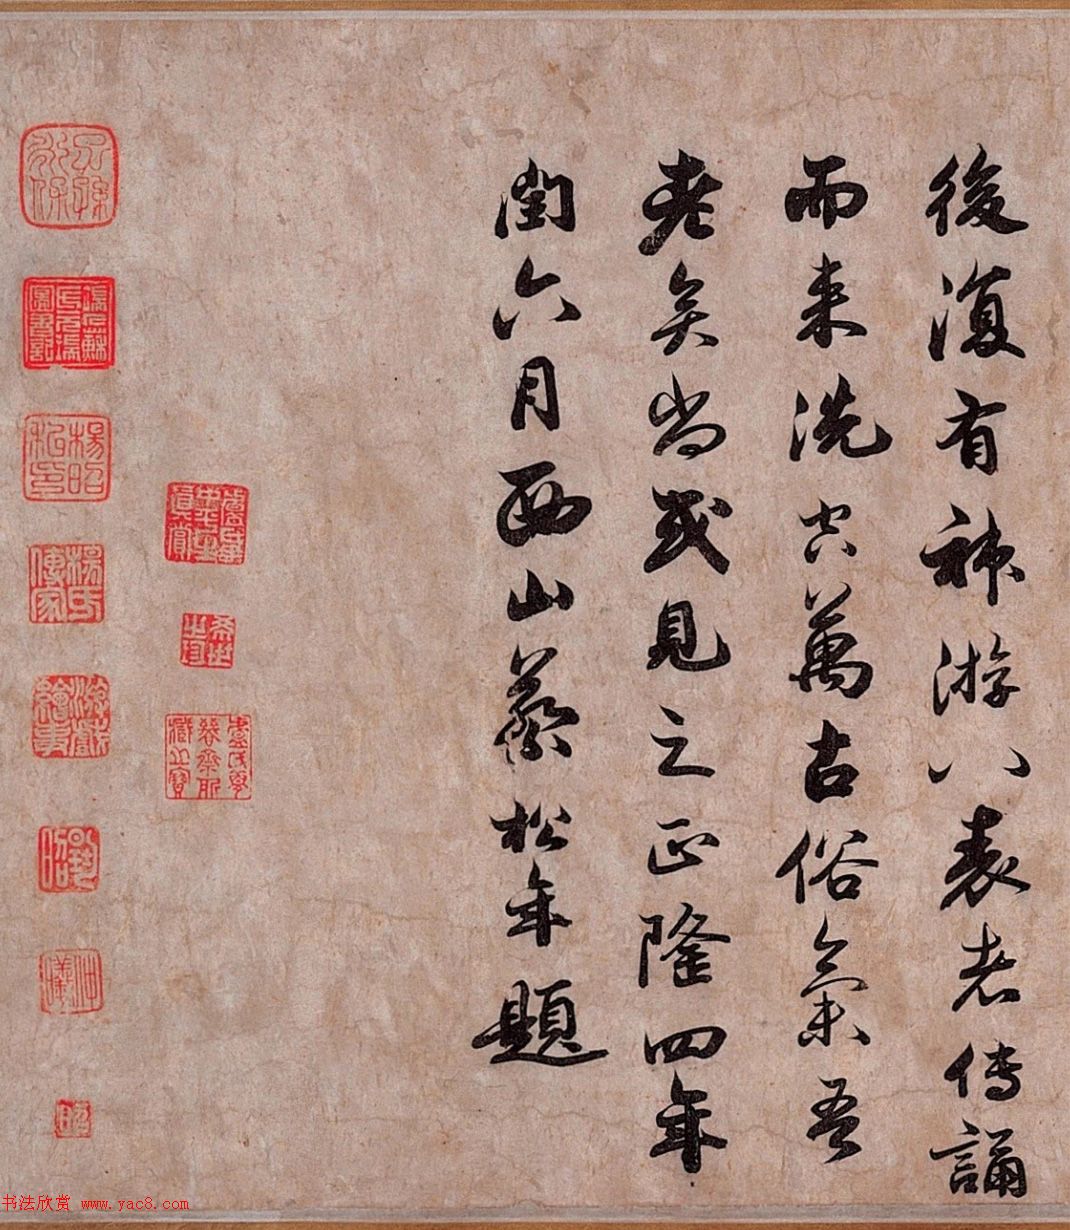 後復有神游八表者傳誦
而來洗空萬古俗氣吾
老矣尚或見之正隆四年
閏六月西山蔡松年題
楊氏傳家
书法欣赏 www.yac8.com